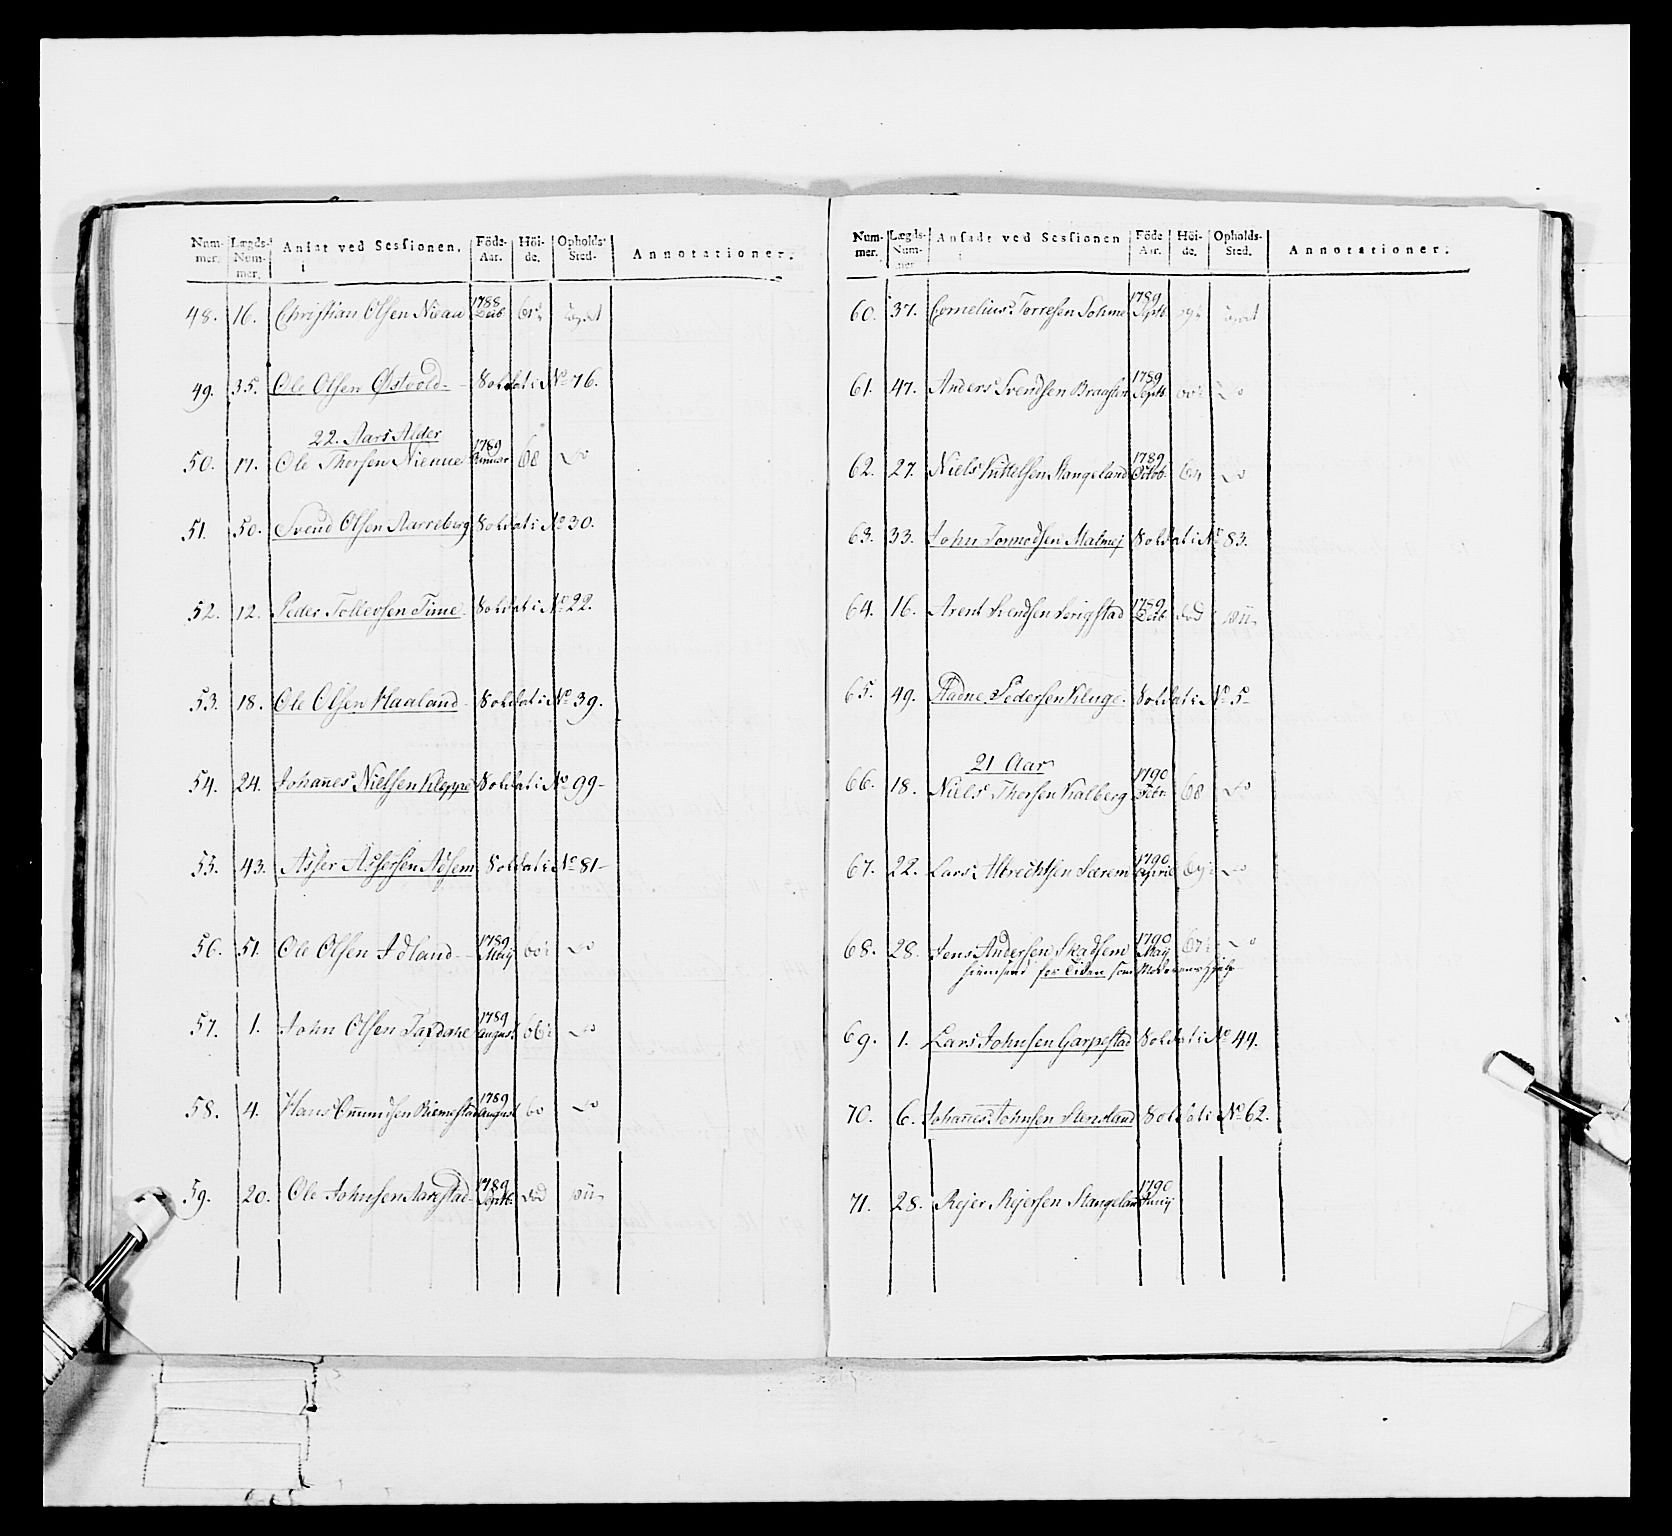 Num-mer. Lægds-Num-mer. Ansat ved Sessionen. Föde-Aar. Höi-de. Opholds-Sted. Annotationer.
48. 16. Christian Olsen 1788 Decb
49. 35. Ole Olsen Østvold - Soldat i No 76.
22. Aars Alder
50. 17. Ole Thorsen 1789 Januar 68 do
51. 50. Svend Olsen Aarreberg Soldat i No 30.
52. 12. Peder Tollevsen Time Soldat i No 22.
53. 18. Ole Olsen Haaland Soldat i No 39.
54. 24. Johanes Nielsen Kleppe Soldat i No 99-
55. 43. Asser Assersen Soldat i No 81-
56. 51. Ole Olsen 1789 do
57. 1. John Olsen 1789 August do
58. 4. Hans Omundsen 1789 August 60 do
59. 20. Ole Johnsen 1789 Septb. död
Num-mer. Lægds-Num-mer. Ansadt ved Sessionen Föde Aar. Höi-de. Opholds-Sted. Annotationer.
60. 37. Cornelius Torresen 1789 Septb.
61. 47. Anders Svendsen 1789 Septb. do
62. 27. Niels Kittelsen Stangeland 1789 Octob. do
63. 33. John Tormodsen Malmej Soldat i No 83.
64. 16. Arent Svendsen 1789 Decb död
65. 49. Pedersen Kluge. Soldat i No 5-
21 Aar
66. 18. Niels Thorsen Kalberg 1790 Febr. 68 do
67. 22. Lars Albrechtsen 1790 April do
68. 28. Jens Andersen Skadsem 1790 Maij do
for Eiden som
69. 1. Lars Johnsen Garpestad Soldat i No 44.
70. 6. Johanes Johnsen Soldat i No 62.
71. 28. Rejer Rejersen Stangeland 1790